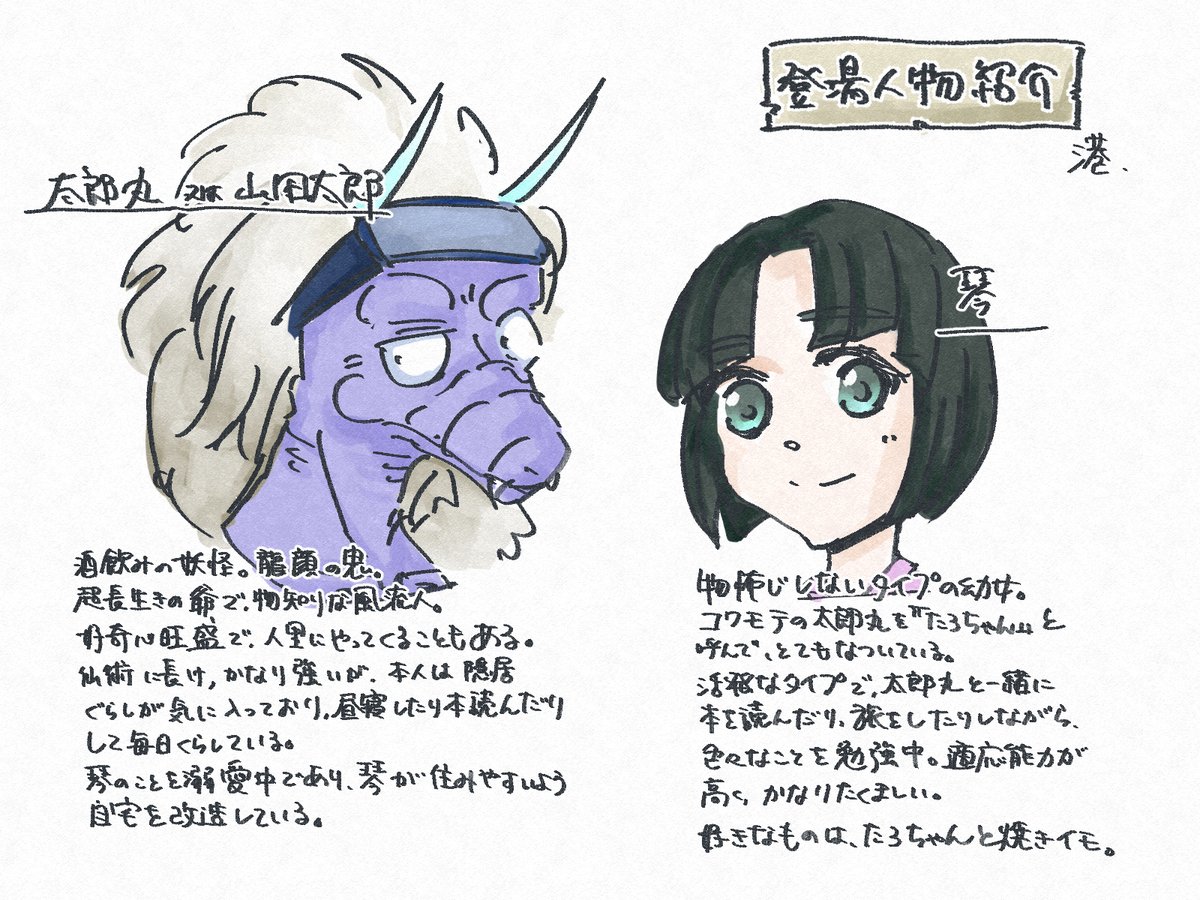 登場人物紹介
港、
太郎丸 又は 山田太郎
酒飲みの妖怪。龍顔の鬼。
超長生きの爺で、物知りな風流人。
好奇心旺盛で、人里にやってくることもある。
仙術に長け、かなり強いが、本人は隠居
ぐらしが気に入っており、昼寝したり本読んだり
して毎日くらしている。
琴のことを溺愛中であり、琴が住みやすいよう
自宅を改造している。
琴
物怖じしないタイプの幼女。
コワモテの太郎丸を『たろちゃん』と
呼んで、とてもなついている。
活発なタイプで、太郎丸と一緒に
本を読んだり、旅をしたりしながら、
色々なことを勉強中。適応能力が
高く、かなりたくましい。
好きなものは、たろちゃんと焼きイモ。